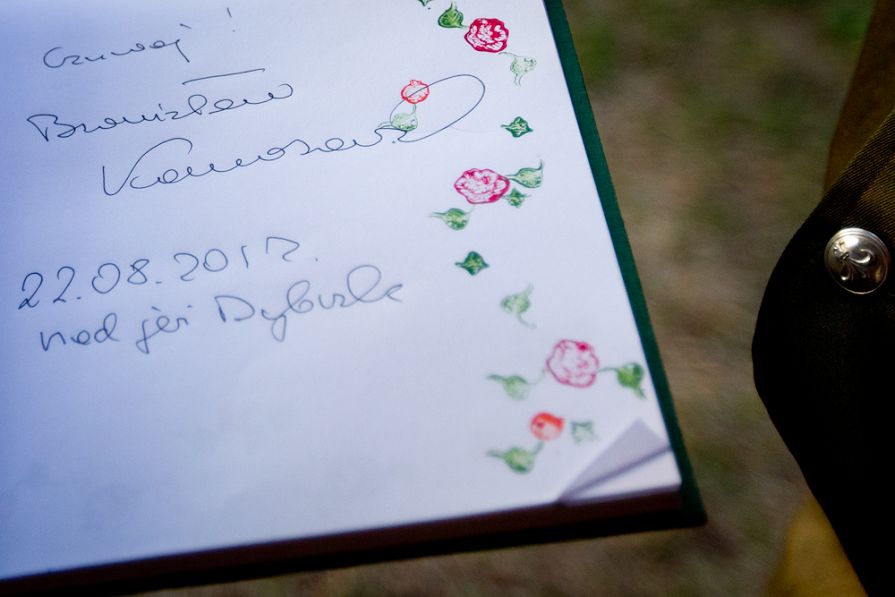 Czuwaj!
Bronisław
Komorowski
22.08.2012.
nad jez Dybrzk